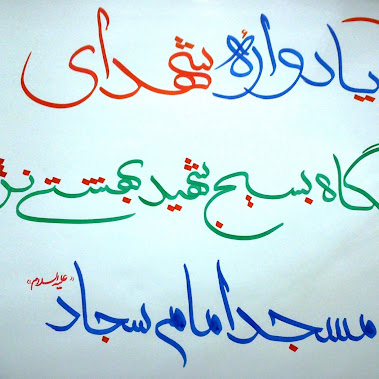 یادوارهٔ شهدای
گاه بسیج شهید بهشتی نژ
مسجد امام سجاد «علیه السلام»